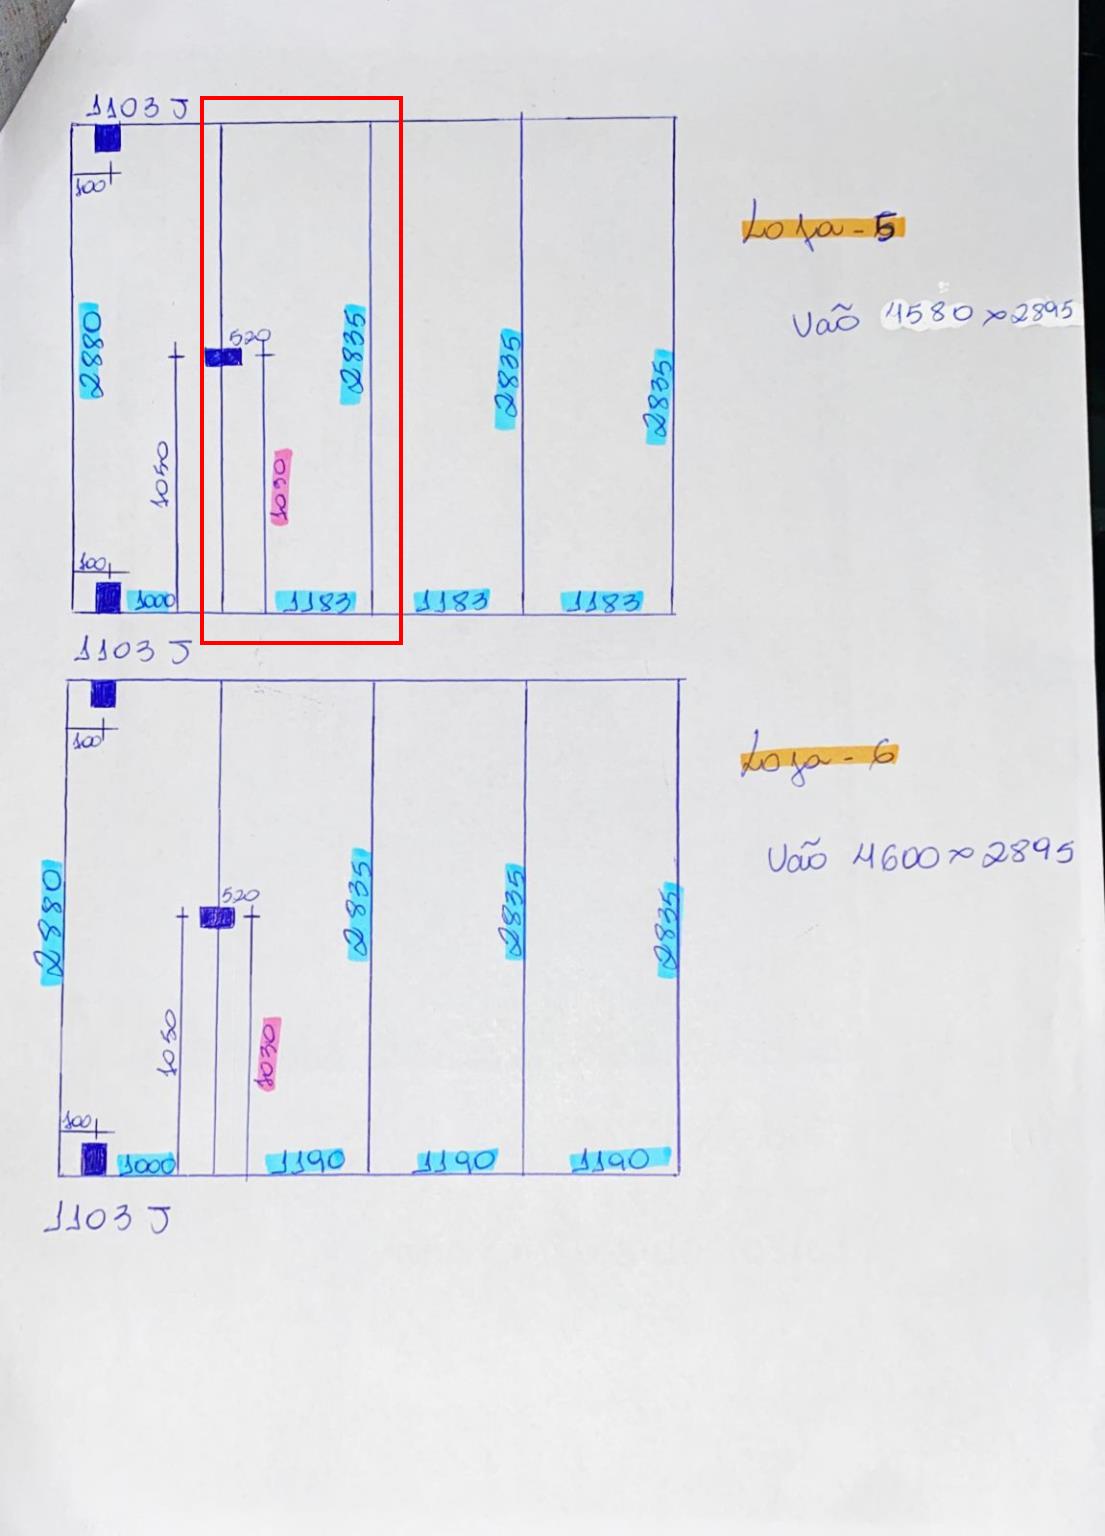 1103 J
100
Loja - 5
Vaõ 4580 x 2895
2880
520
2835
2835
2835
1050
1030
100
1000
1183
1183
1183
1103 J
100
Loja - 6
Vaõ 4600 x 2895
2880
520
2835
2835
2835
1050
1030
100
1000
1190
1190
1190
1103 J